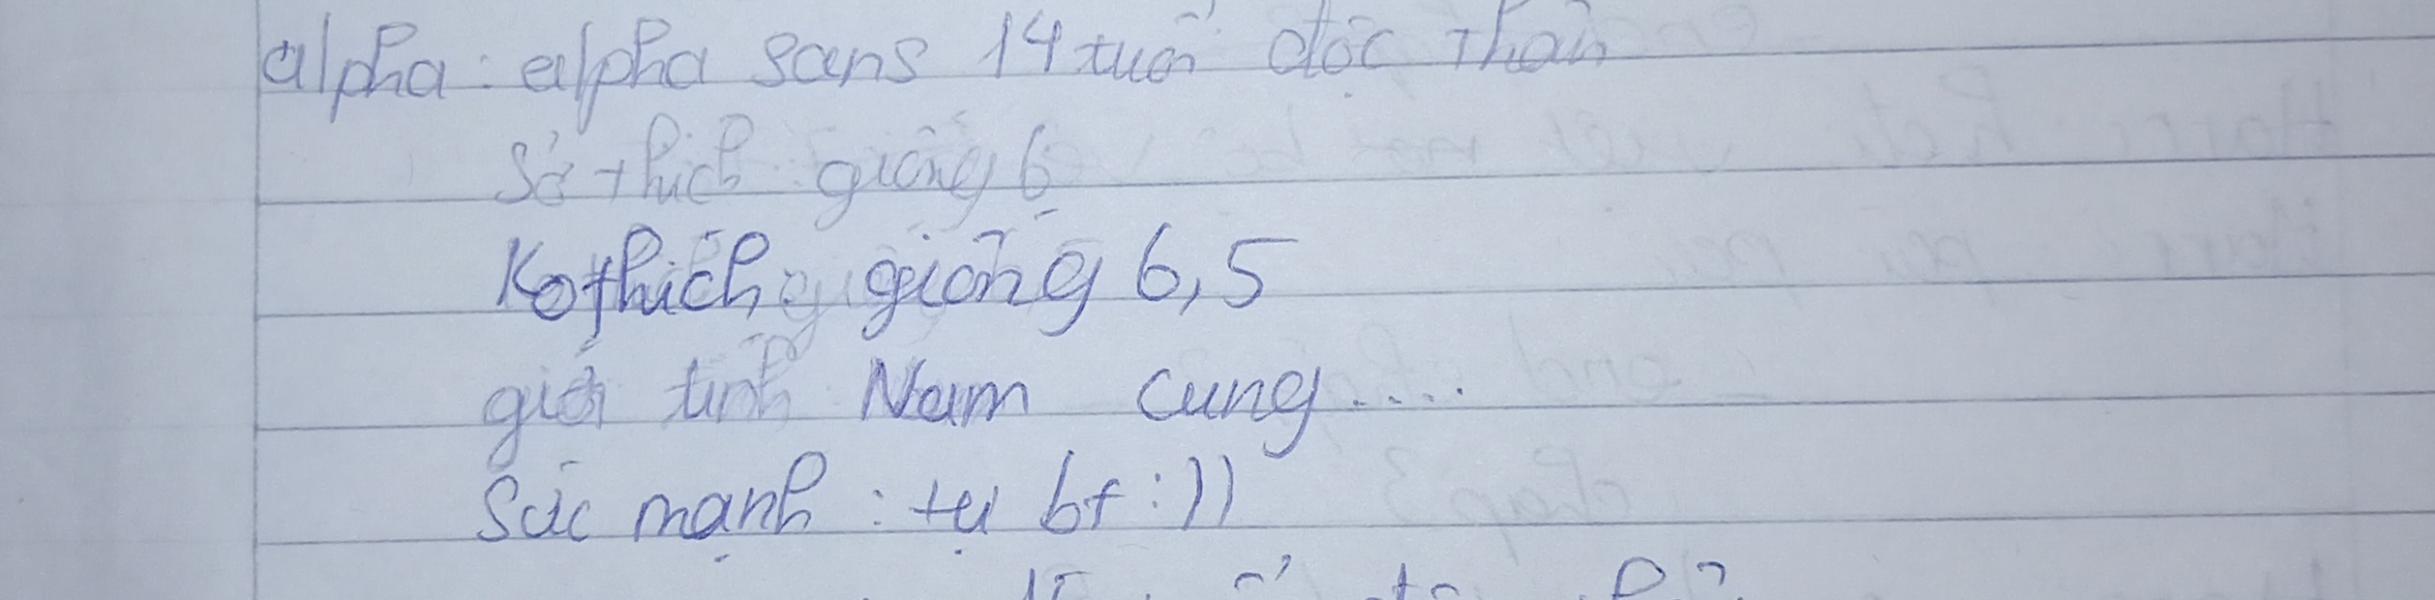 alpha : alpha sans 14 tuổi độc thân
Sở thích giống 6
Ko thích giống 6,5
giới tính Nam cung....
Sức mạnh : tự bt :))